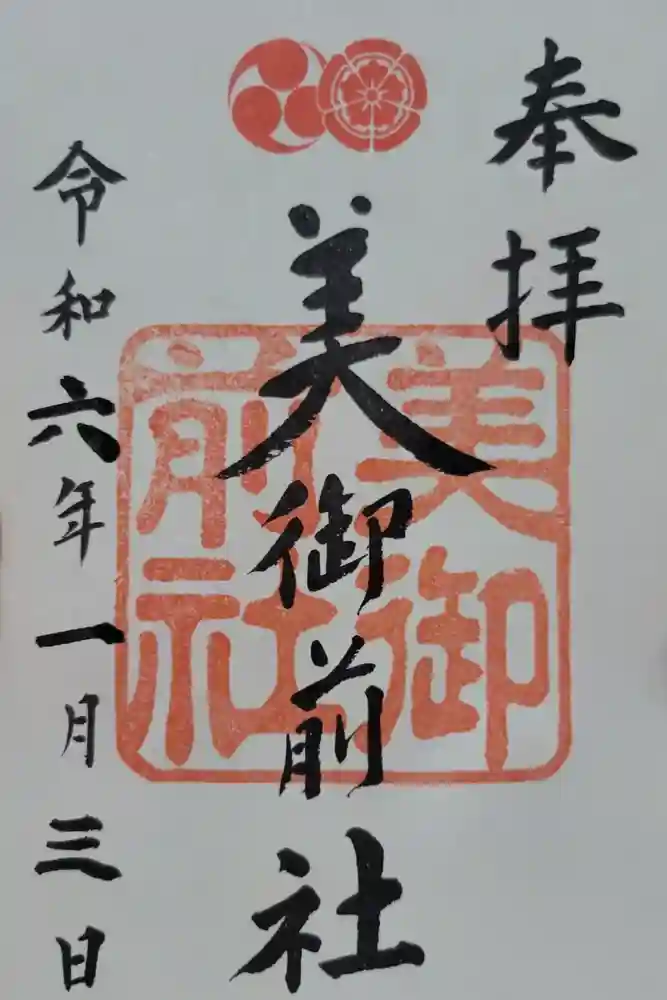 奉拝
美御前社
美御前社
令和六年一月三日